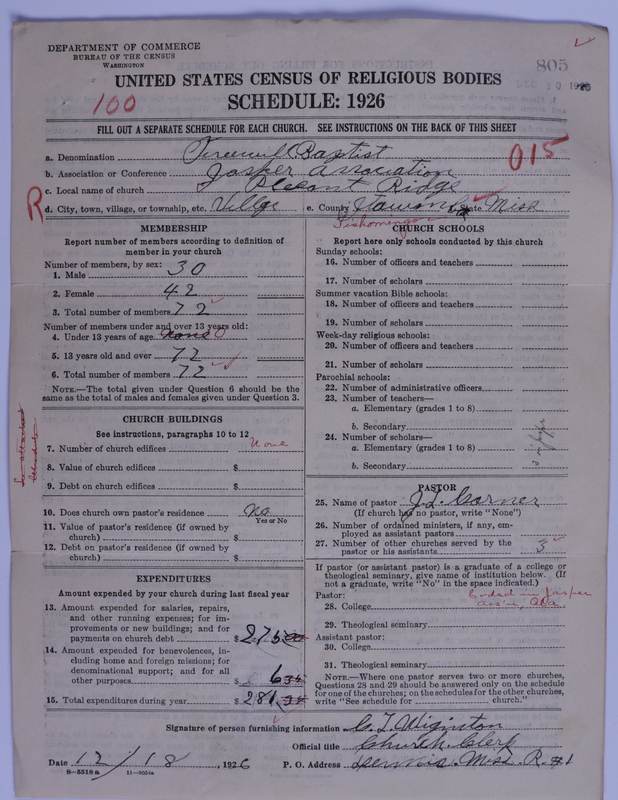 DEPARTMENT OF COMMERCE
BUREAU OF THE CENSUS
WASHINGTON
805
DEC 20 1926
UNITED STATES CENSUS OF RELIGIOUS BODIES
100
SCHEDULE: 1926
FILL OUT A SEPARATE SCHEDULE FOR EACH CHURCH. SEE INSTRUCTIONS ON THE BACK OF THIS SHEET
015
a. Denomination Freewill Baptist
b. Association or Conference Jasper Association
c. Local name of church Plesant Ridge
R
d. City, town, village, or township, etc. Villge e. County Itawamba State Miss
Tishomingo
MEMBERSHIP
Report number of members according to definition of
member in your church
Number of members, by sex:
1. Male 30
2. Female 42
3. Total number of members 72
Number of members under and over 13 years old:
4. Under 13 years of age none 0
5. 13 years old and over 72
6. Total number of members 72
NOTE.—The total given under Question 6 should be the
same as the total of males and females given under Question 3.
CHURCH BUILDINGS
See instructions, paragraphs 10 to 12
7. Number of church edifices None
8. Value of church edifices $
9. Debt on church edifices $
See attached
schedule
10. Does church own pastor's residence No
Yes or No
11. Value of pastor's residence (if owned by
church) $
12. Debt on pastor's residence (if owned by
church) $
EXPENDITURES
Amount expended by your church during last fiscal year
13. Amount expended for salaries, repairs,
and other running expenses; for im-
provements or new buildings; and for
payments on church debt $ 275 00
14. Amount expended for benevolences, in-
cluding home and foreign missions; for
denominational support; and for all
other purposes $ 6
15. Total expenditures during year $ 281
CHURCH SCHOOLS
Report here only schools conducted by this church
Sunday schools:
16. Number of officers and teachers
17. Number of scholars
Summer vacation Bible schools:
18. Number of officers and teachers
19. Number of scholars
Week-day religious schools:
20. Number of officers and teachers
21. Number of scholars
Parochial schools:
22. Number of administrative officers
23. Number of teachers—
a. Elementary (grades 1 to 8)
b. Secondary
24. Number of scholars—
a. Elementary (grades 1 to 8)
b. Secondary
PASTOR
25. Name of pastor J. L. Garner
(If church has no pastor, write "None")
26. Number of ordained ministers, if any, em-
ployed as assistant pastors
27. Number of other churches served by the
pastor or his assistants 3
If pastor (or assistant pastor) is a graduate of a college or
theological seminary, give name of institution below. (If
not a graduate, write "No" in the space indicated.)
Pastor: Coded in Jasper
28. College Ass'n, Ala
29. Theological seminary
Assistant pastor:
30. College
31. Theological seminary
NOTE.—Where one pastor serves two or more churches,
Questions 28 and 29 should be answered only on the schedule
for one of the churches; on the schedules for the other churches,
write "See schedule for church."
Signature of person furnishing information C. T. Wiginton
Official title Church Clerk
Date 12/18, 1926 P. O. Address Dennis. Miss. R. #1
8—5518a 11—9054a